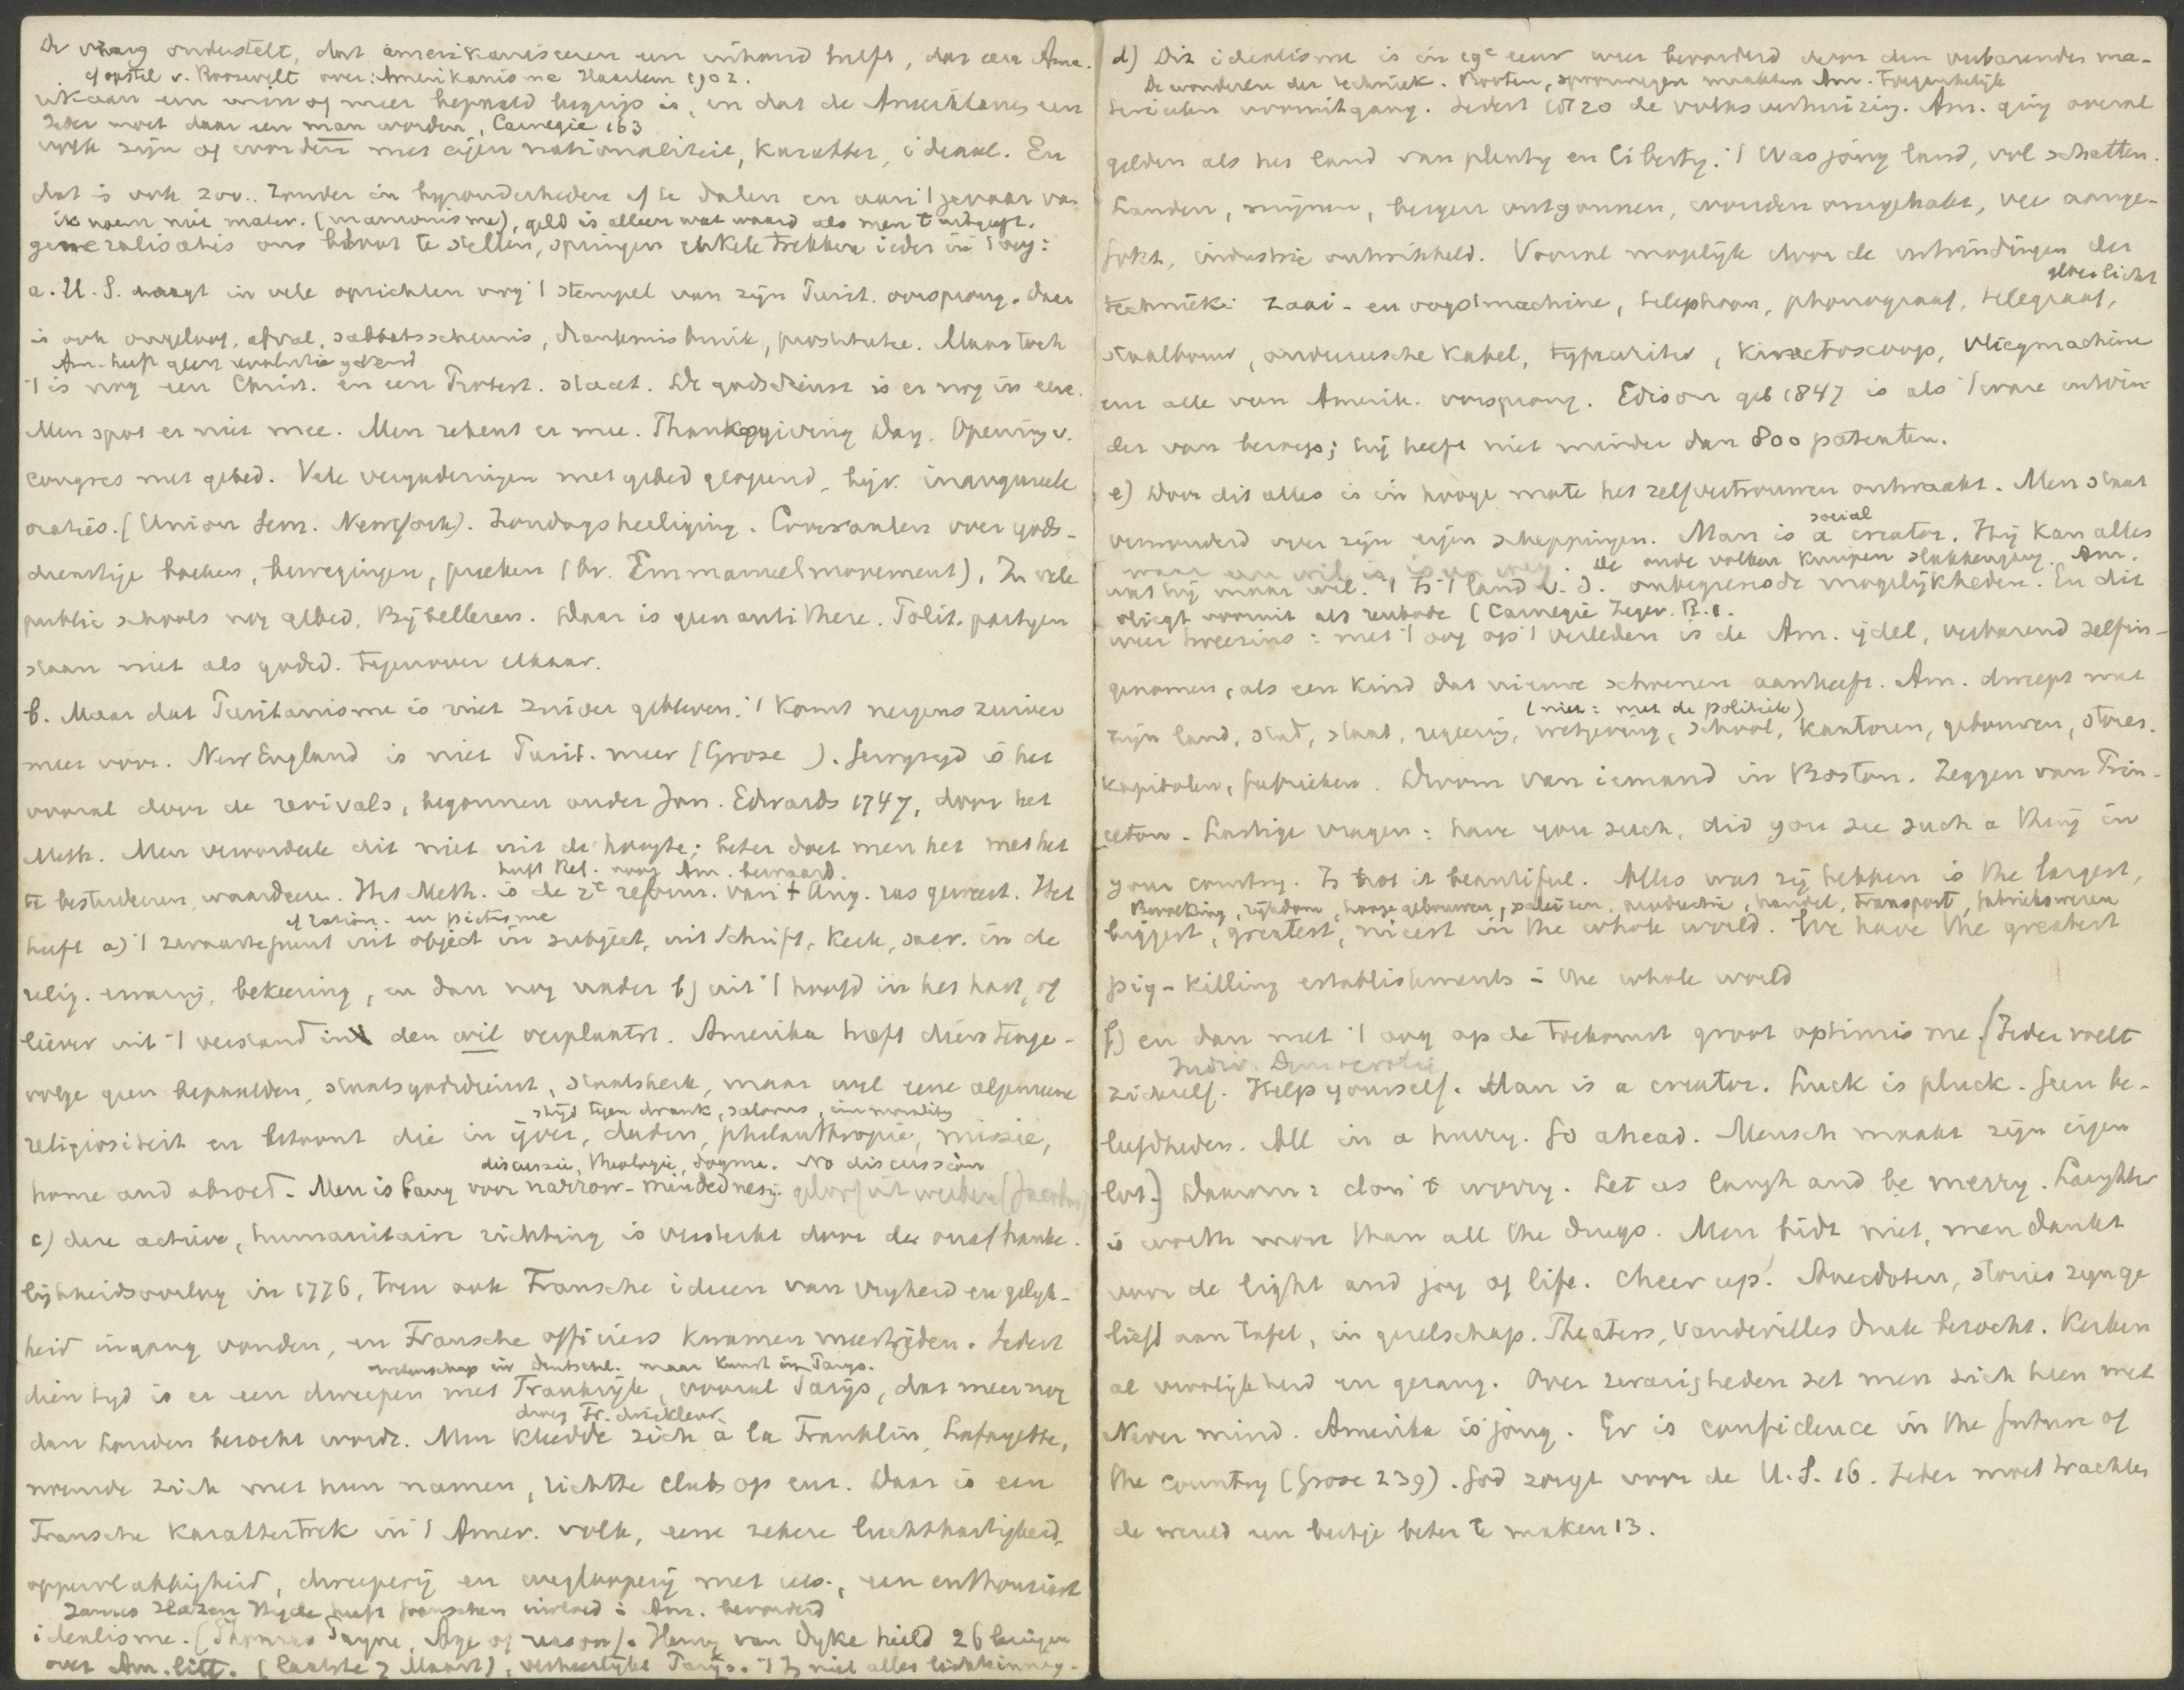 De vraag onderstelt, dat amerikaniseeren een inhoud heeft, dat een Ame-
cf opstel v. Roosevelt over: Amerikanisme Haarlem 1902.
rikaan een min of meer bepaald begrip is, en dat de Amerikanen een
Ieder moet daar een man worden, Carnegie 163
volk zijn of worden met eigen nationaliteit, karakter, ideaal. En
dat is ook zoo. Zonder in byzonderheden af te dalen en aan 't gevaar van
ik noem niet mater. (mammonisme), geld is alleen wat waard als men 't uitgeeft.
generalisatie ons bloot te stellen, springen enkele trekken ieder in 't oog:
a. U.S. draagt in vele opzichten nog 't stempel van zijn Purit. oorsprong. Daar
is ook ongeloof, afval, sabbatsschennis, drankmisbruik, prostitutie. Maar toch
Am. heeft geen revolutie gekend
't is nog een Christ. en een Protest. staat. De godsdienst is er nog in eere.
Men spot er niet mee. Men rekent er mee. Thanksgiving Day. Opening v.
congres met gebed. Vele vergaderingen met gebed geopend, bijv. inaugureele
oraties. (Union Sem. New York). Zondagsheiliging. Couranten over gods-
dienstige boeken, bewegingen, preeken (bv. Emmanuel movement). In vele
public schools nog gebed, Bijbellezen. Daar is geen antithese. Polit. partyen
staan niet als godsd. tegenover elkaar.
b. Maar dat Puritanisme is niet zuiver gebleven. 't Komt nergens zuiver
meer voor. New England is niet Purit. meer (Grose ). Gewyzigd is het
vooral door de revivals, begonnen onder Jon. Edwards 1747, door het
Meth. Men veroordeele dit niet uit de hoogte; beter doet men het met het
heeft Rel. voor Am. bewaard.
te bestudeeren, waardeeren. Het Meth. is de 2e reform. van 't Ang. ras geweest. Het
cf ration. en pietisme
heeft a) 't zwaartepunt uit object in subject, uit Schrift, Kerk, sacr. in de
relig. ervaring, bekeering, en dan nog nader b) uit 't hoofd in het hart, of
liever uit 't verstand in den wil verplaatst. Amerika heeft dientenge-
volge geen bepaalden staatsgodsdienst, staatskerk, maar wel eene algemeene
strijd tegen drank, saloons, immorality
religiositeit en betoont die in ijver, daden, philanthropie, missie,
discussie, theologie, dogma. No discussion
home and abroad. Men is bang voor narrow-mindedness.
c) deze actieve, humanitaire richting is versterkt door den onafhanke-
lijkheidsoorlog in 1776, toen ook Fransche ideeen van vryheid en gelyk-
heid ingang vonden, en Fransche officiers kwamen meestrijden. Sedert
wetenschap in Duitschl. maar kunst in Parijs.
dien tyd is er een dweepen met Frankrijk, vooral Parijs, dat meer nog
droeg Fr. driekleur.
dan Londen bezocht wordt. Men kleedde zich à la Franklin, Lafayette,
noemde zich met hun namen, richtte clubs op enz. Daar is een
Fransche karaktertrek in 't Amer. volk, eene zekere luchthartigheid,
oppervlakkigheid, dweeperij en wegloopery met iets, een enthousiast
James Hazen Hyde heeft franschen invloed i Am. bevorderd
idealisme. (Thomas Payne, Age of reason). Henry van Dyke hield 26 lezingen
over Am. litt. (laatste 7 Maart), verheerlykt Parijs. 't Is niet alles lichtzinnig-
d) Dit idealisme is in 19e eeuw weer bevorderd door den verbazenden ma-
De wonderen der techniek. Booten, spoorwegen maakten Am. toegankelijk
terieelen vooruitgang. Sedert 1820 de volksverhuizing. Am. ging overal
gelden als het land van plenty en liberty. 't Was jong land, vol schatten.
Landen, mijnen, bergen ontgonnen, wouden omgehakt, vee aange-
fokt, industrie ontwikkeld. Vooral mogelijk door de uitvindingen der
gloeilicht
techniek: zaai- en oogstmachine, telephoon, phonograaf, telegraaf,
staalbouw, onderzeesche kabel, typewriter, kinetoscoop, vliegmachine
enz alle van Amerik. oorsprong. Edison geb 1847 is als 't ware uitvin-
der van beroep; hij heeft niet minder dan 800 patenten.
e) Door dit alles is in hooge mate het zelfvertrouwen ontwaakt. Men staat
social
verwonderd over zijn eigen scheppingen. Man is a creator. Hij kan alles
waar een wil is is een weg. De oude volken kruipen slakkengang. Am.
wat hij maar wil. 't Is 't land v. d. onbegrensde mogelijkheden. En dit
vliegt vooruit als renbode (Carnegie Zegev. R. 1.
weer tweezins: met 't oog op 't verleden is de Am. ijdel, verbazend zelfin-
genomen, als een kind dat nieuwe schoenen aanheeft. Am. dweept met
(niet: met de politiek)
zijn land, stad, staat, regeering, wetgeving, school, kantoren, gebouwen, stores.
kapitalen, fabrieken. Droom van iemand in Boston. Zeggen van Prin-
ceton. Lastige vragen: have you such, did you see such a thing in
your country. Is not it beautiful. Alles wat zij hebben is the largest,
Bevolking, rijkdom, hooge gebouwen, paleizen, productie, handel, transport, fabriekswezen
biggest, greatest, nicest in the whole world. We have the greatest
pig-killing establishments i the whole world
f) en dan met 't oog op de toekomst groot optimisme. [Ieder voelt
Indiv. Democratie
zichzelf. Help yourself. Man is a creator. Luck is pluck. Geen be-
leefdheden. All in a hurry. Go ahead. Mensch maakt zijn eigen
lot.] Daarom: don't worry. Let us laugh and be merry. Laughter
is worth more than all the drugs. Men bidt niet, men dankt
voor de light and joy of life. Cheer up! Anecdoten, stories zyn ge
liefd aan tafel, in gezelschap. Theaters, vaudevilles druk bezocht. Kerken
al vroolijkheid en gezang. Over zwarigheden zet men zich heen met
Never mind. Amerika is jong. Er is confidence in the future of
the country (Grose 239). God zorgt voor de U.S. 16. Ieder moet trachten
de wereld een beetje beter te maken 13.